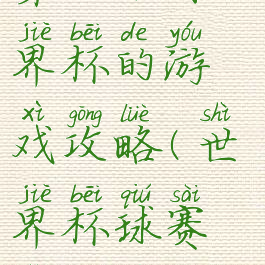 jiè bēi de yóu
界杯的游
xì gōng lüè shì
戏攻略(世
jiè bēi qiú sài
界杯球赛